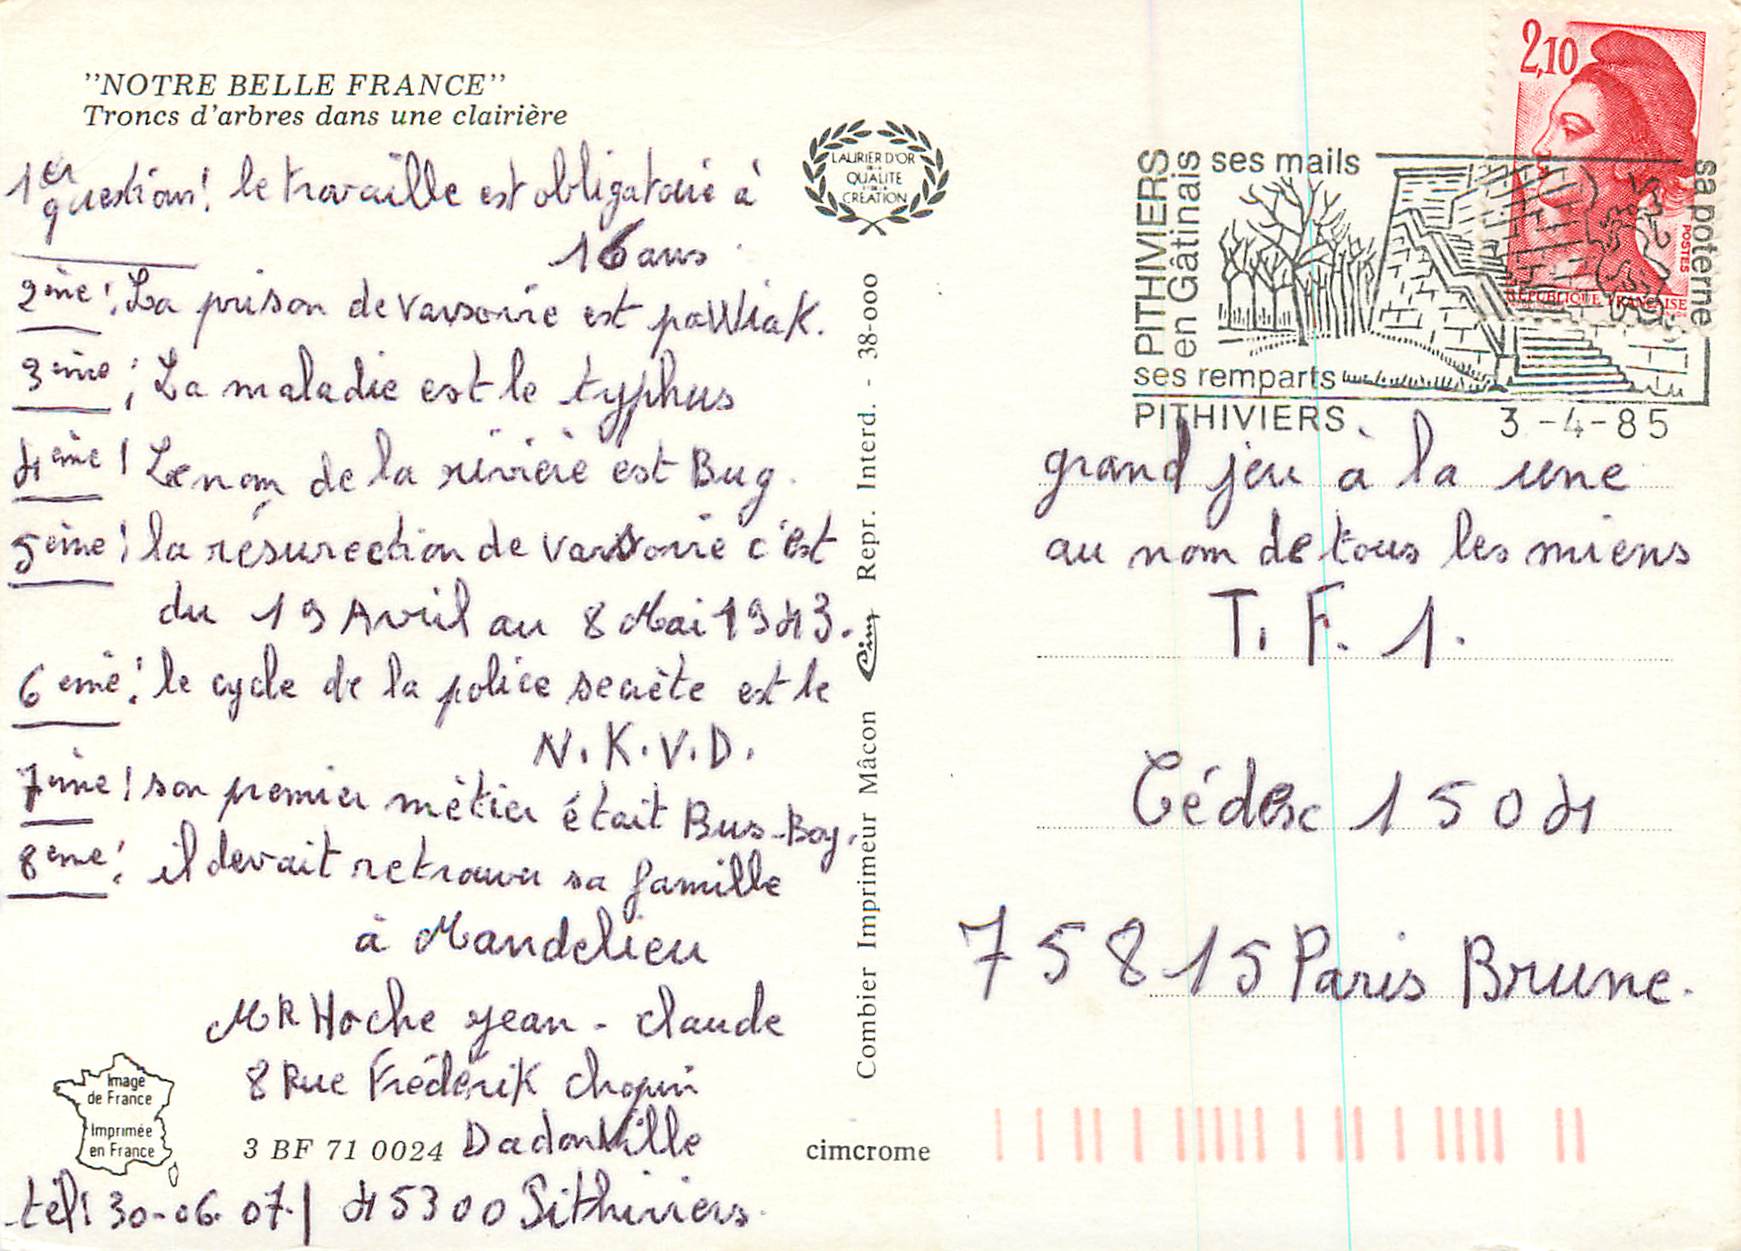 "NOTRE BELLE FRANCE"
Troncs d'arbres dans une clairière
1er question! le travaille est obligatoire à
16 ans.
2ème! La prison de varsovie est paWiak.
3ème; La maladie est le typhus
4ème! Le nom de la rivière est Bug.
5ème! la résurection de varsovie c'est
du 19 Avril au 8 Mai 1943.
6ème! le cycle de la police secrète est le
N.K.V.D.
7ème! son premier mètier était Bus-Boy.
8ème! il devait retrouver sa famille
à Mandelieu
MR Hoche jean-claude
8 Rue Frédérik chopin
3 BF 71 0024 Dadonville
tél! 30-06.07. | 45300 Pithiviers.
Image
de France
Imprimée
en France
cimcrome
LAURIER D'OR
DE LA
QUALITE
ET DE LA
CREATION
Combier Imprimeur Mâcon Cim Repr. Interd. - 38-000
2,10
POSTES
REPUBLIQUE FRANCAISE
PITHIVIERS
en Gâtinais
ses mails
sa poterne
ses remparts
PITHIVIERS 3-4-85
grand jeu à la une
au nom de tous les miens
T.F.1.
Cédex 1504
75815 Paris Brune.